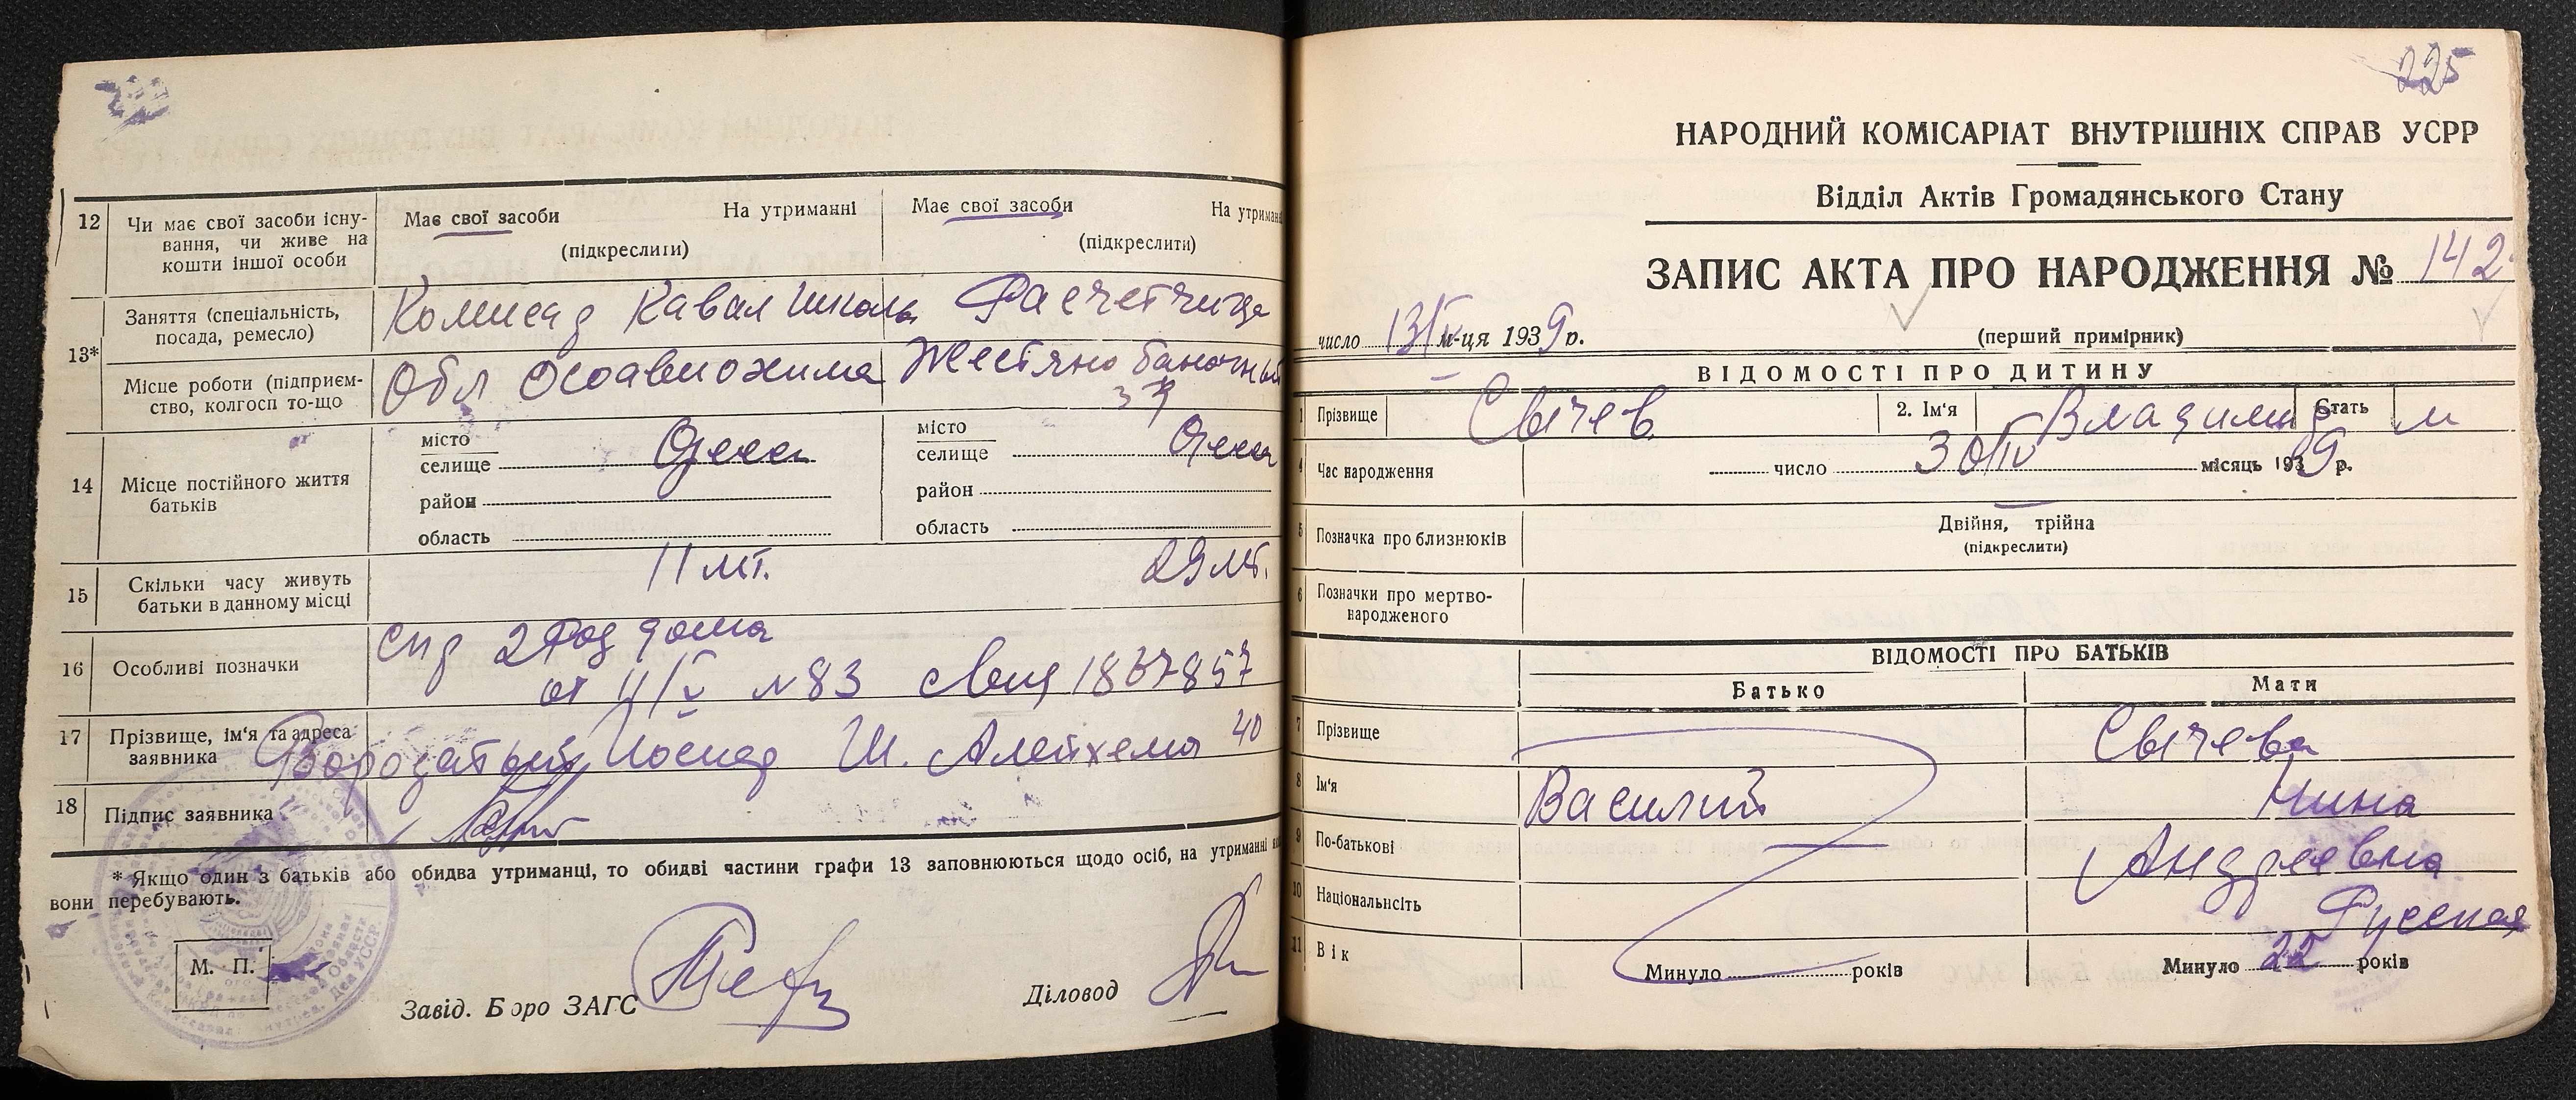 12 Чи має свої засоби існу-
вання, чи живе на
кошти іншої особи
Має свої засоби На утриманні
(підкреслити)
Має свої засоби На утриманні
(підкреслити)
13* Заняття (спеціальність,
посада, ремесло)
Комисар Кавал школы
Расчетчица
Місце роботи (підприєм-
ство, колгосп то-що
Обл Осоавиохима
Жестяно баночный
з-д
14 Місце постійного життя
батьків
місто
селище Одесса
район
область
місто
селище Одесса
район
область
15 Скільки часу живуть
батьки в данному місці
11 лет.
29 лет.
16 Особливі позначки
спр 2 Род дома
от 4/V №83 свид 1867857
17 Прізвище, ім'я та адреса
заявника
Бородатый Иосиф Ш. Алейхема 40
18 Підпис заявника
* Якщо один з батьків або обидва утриманці, то обидві частини графи 13 заповнюються щодо осіб, на утриманні яких
вони перебувають.
М. П.
Завід. Бюро ЗАГС
Діловод
225
НАРОДНИЙ КОМІСАРІАТ ВНУТРІШНІХ СПРАВ УСРР
Відділ Актів Громадянського Стану
ЗАПИС АКТА ПРО НАРОДЖЕННЯ № 142
число 13/V м-ця 1939 р.
(перший примірник)
ВІДОМОСТІ ПРО ДИТИНУ
1 Прізвище Сычев 2. Ім'я Владимир Стать м
4 Час народження число 30/IV місяць 1939 р.
5 Позначка про близнюків
Двійня, трійна
(підкреслити)
6 Позначки про мертво-
народженого
ВІДОМОСТІ ПРО БАТЬКІВ
Батько Мати
7 Прізвище Сычева
8 Ім'я Василий Нина
9 По-батькові Андреевна
10 Національність Русская
11 Вік Минуло років Минуло 22 років